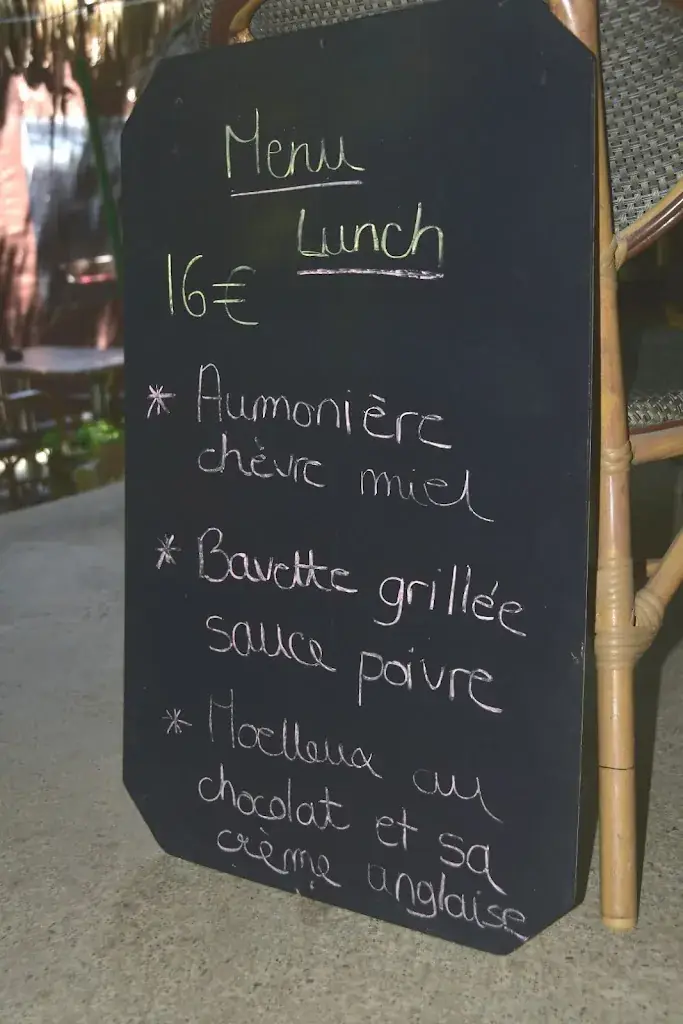 Menu
Lunch
16€
* Aumonière
chèvre miel
* Bavette grillée
sauce poivre
* Moelleux au
chocolat et sa
crème anglaise